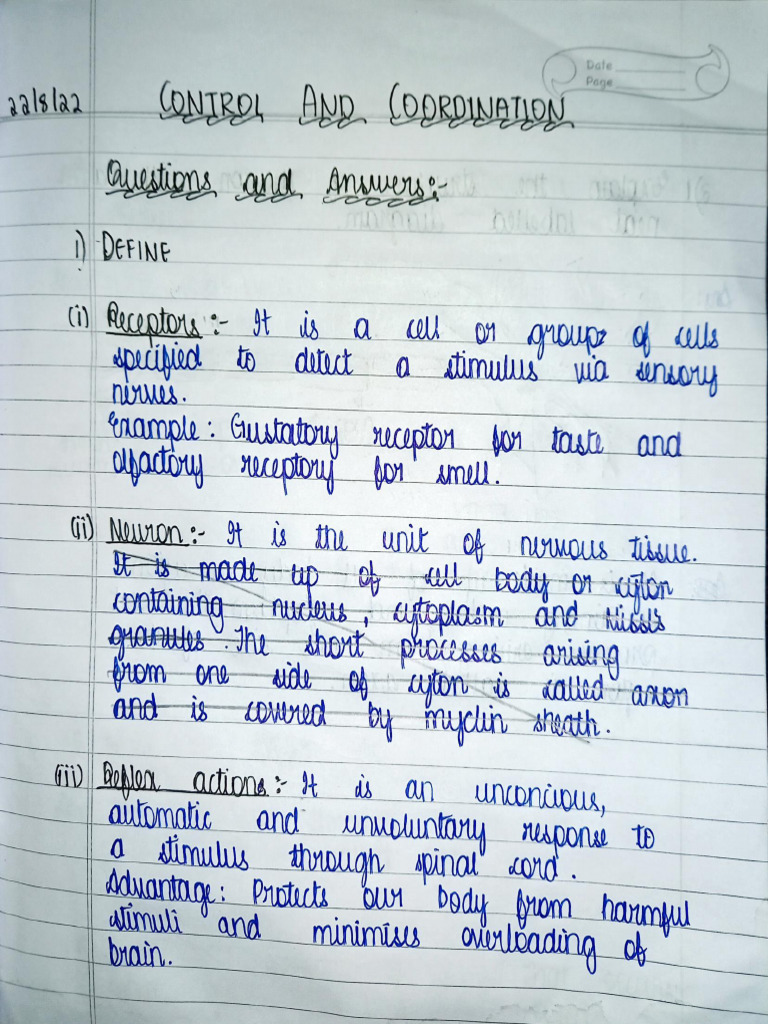 Date
Page
22/8/22 CONTROL AND COORDINATION
Questions and Answers:-
1) DEFINE
(i) Receptors:- It is a cell or groups of cells
specified to detect a stimulus via sensory
nerves.
Example: Gustatory receptor for taste and
olfactory receptory for smell.
(ii) Neuron:- It is the unit of nervous tissue.
It is made up of cell body or cyton
containing nucleus, cytoplasm and Nissl's
granules. The short processes arising
from one side of cyton is called axon
and is covered by myelin sheath.
(iii) Reflex actions:- It is an unconcious,
automatic and unvoluntary response to
a stimulus through spinal cord.
Advantage: Protects our body from harmful
stimuli and minimises overloading of
brain.